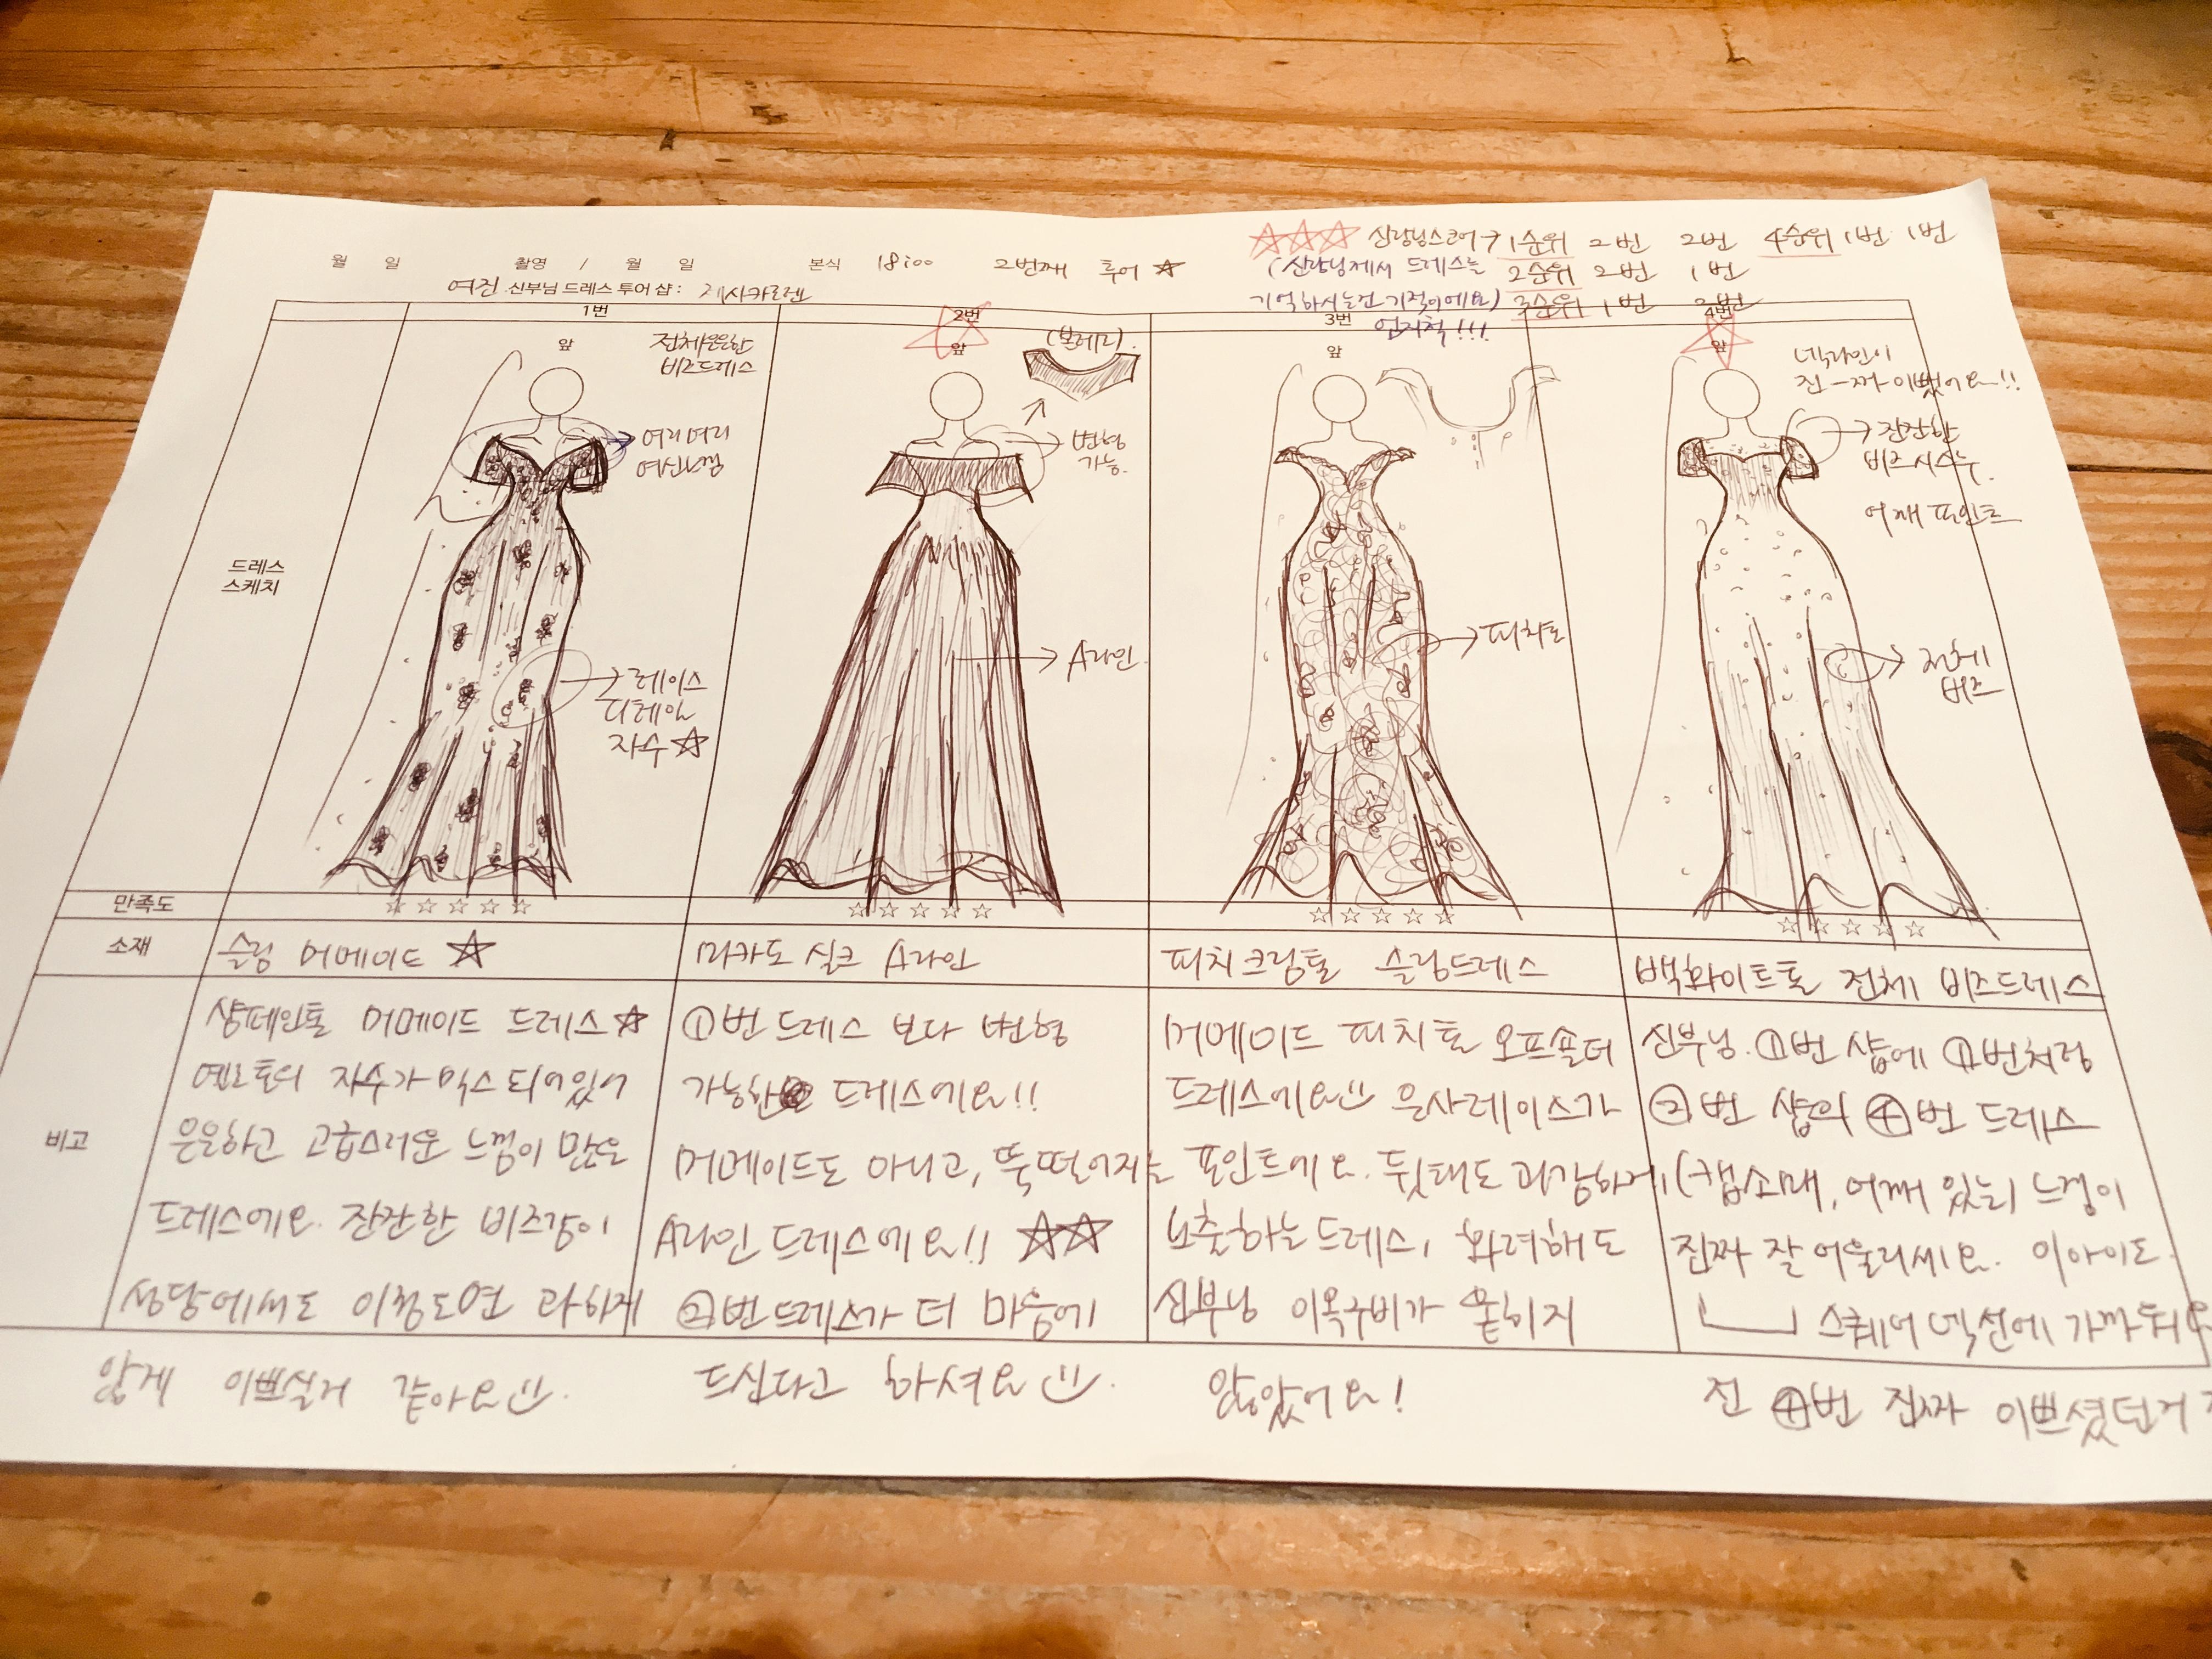 월 일 촬영 / 월 일 본식 18:00 2번째 투어 ☆
☆☆☆ 신랑님스코어→ 1순위 2번 2번 4순위 1번 1번
(신랑님께서 드레스를 2순위 2번 1번
기억하시는건 기적이에요) 3순위 1번
엄지척!!!
여진 신부님 드레스 투어 샵 : 제시카로렌
1번
2번
3번
4번
드레스
스케치
앞
전체은은한
비즈드레스
여리여리
여신느낌
레이스
디테일
자수 ☆
앞
(볼레로)
변형
가능.
A라인
앞
피치톤
앞
넥라인이
진-짜 이뻤어요~!!
잔잔한
비즈시스루.
어깨 포인트
전체
비즈
만족도 ☆☆☆☆☆ ☆☆☆☆☆ ☆☆☆☆☆ ☆☆☆☆☆
소재
슬림 머메이드 ☆
미카도 실크 A라인
피치크림톤 슬림드레스
백화이트톤 전체 비즈드레스
비고
샴페인톤 머메이드 드레스☆
옐로톤의 자수가 믹스 되어있어
은은하고 고급스러운 느낌이 많은
드레스에요. 잔잔한 비즈감이
성당에써도 이정도면 과하지
않게 이쁘실거 같아요
①번 드레스 보다 변형
가능한 드레스에요!!
머메이드도 아니고, 뚝떨어지는
A라인 드레스에요!! ☆☆
②번드레스가 더 마음에
드신다고 하셔요
머메이드 피치톤 오프숄더
드레스에요 은사레이스가
포인트에요. 뒷태도 과감하게
노출하는드레스, 화려해도
신부님 이목구비가 묻히지
않았어요!
신부님. ①번 샵에 ①번처럼
②번 샵의 ④번 드레스
(캡소매, 어깨 있는) 느낌이
진짜 잘 어울리세요. 이아이도
스퀘어 넥선에 가까워요
전 ④번 진짜 이쁘셨던거